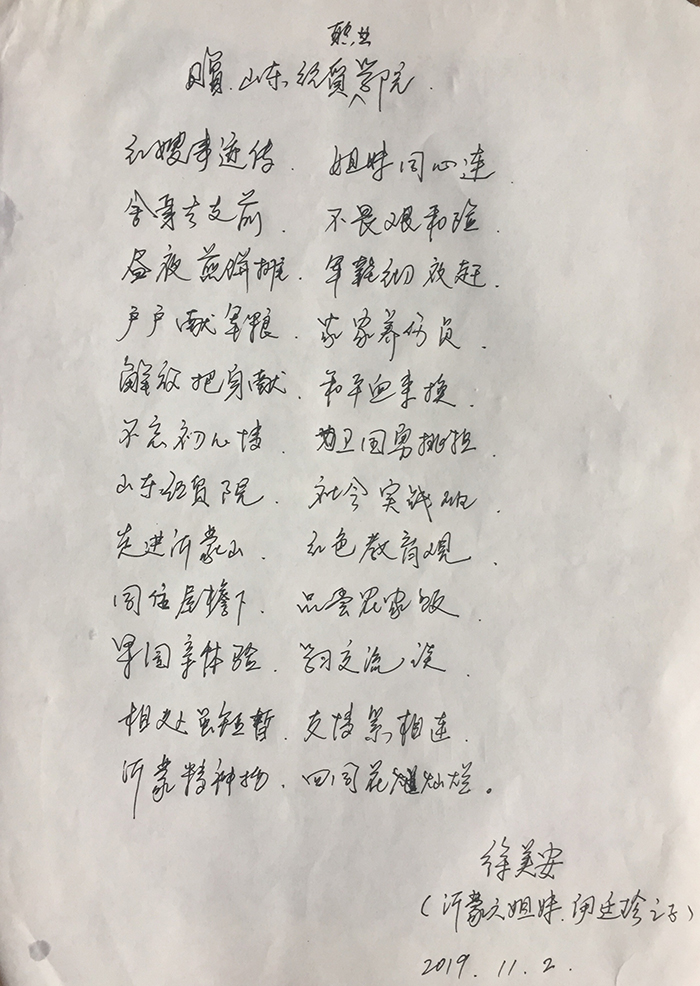 职业
赠.山东经贸学院.
红嫂事迹传. 姐妹同心连.
舍身去支前. 不畏艰和险.
昼夜煎饼摊. 军鞋彻夜赶.
户户献军粮. 家家养伤员.
解放把身献. 和平血来换.
不忘初心情. 为卫国勇挑担.
山东经贸院. 社会实践
走进沂蒙山. 红色教育观.
同住屋檐下. 品尝农家饭.
果园亲体验. 学习交流谈.
相处虽短暂. 友情紧相连.
沂蒙精神扬. 四同花灿烂。
徐美安
(沂蒙六姐妹.伊廷珍之子)
2019.11.2.